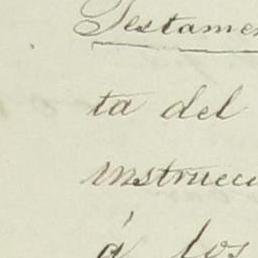 Testamen
ta del
instrucci
á los